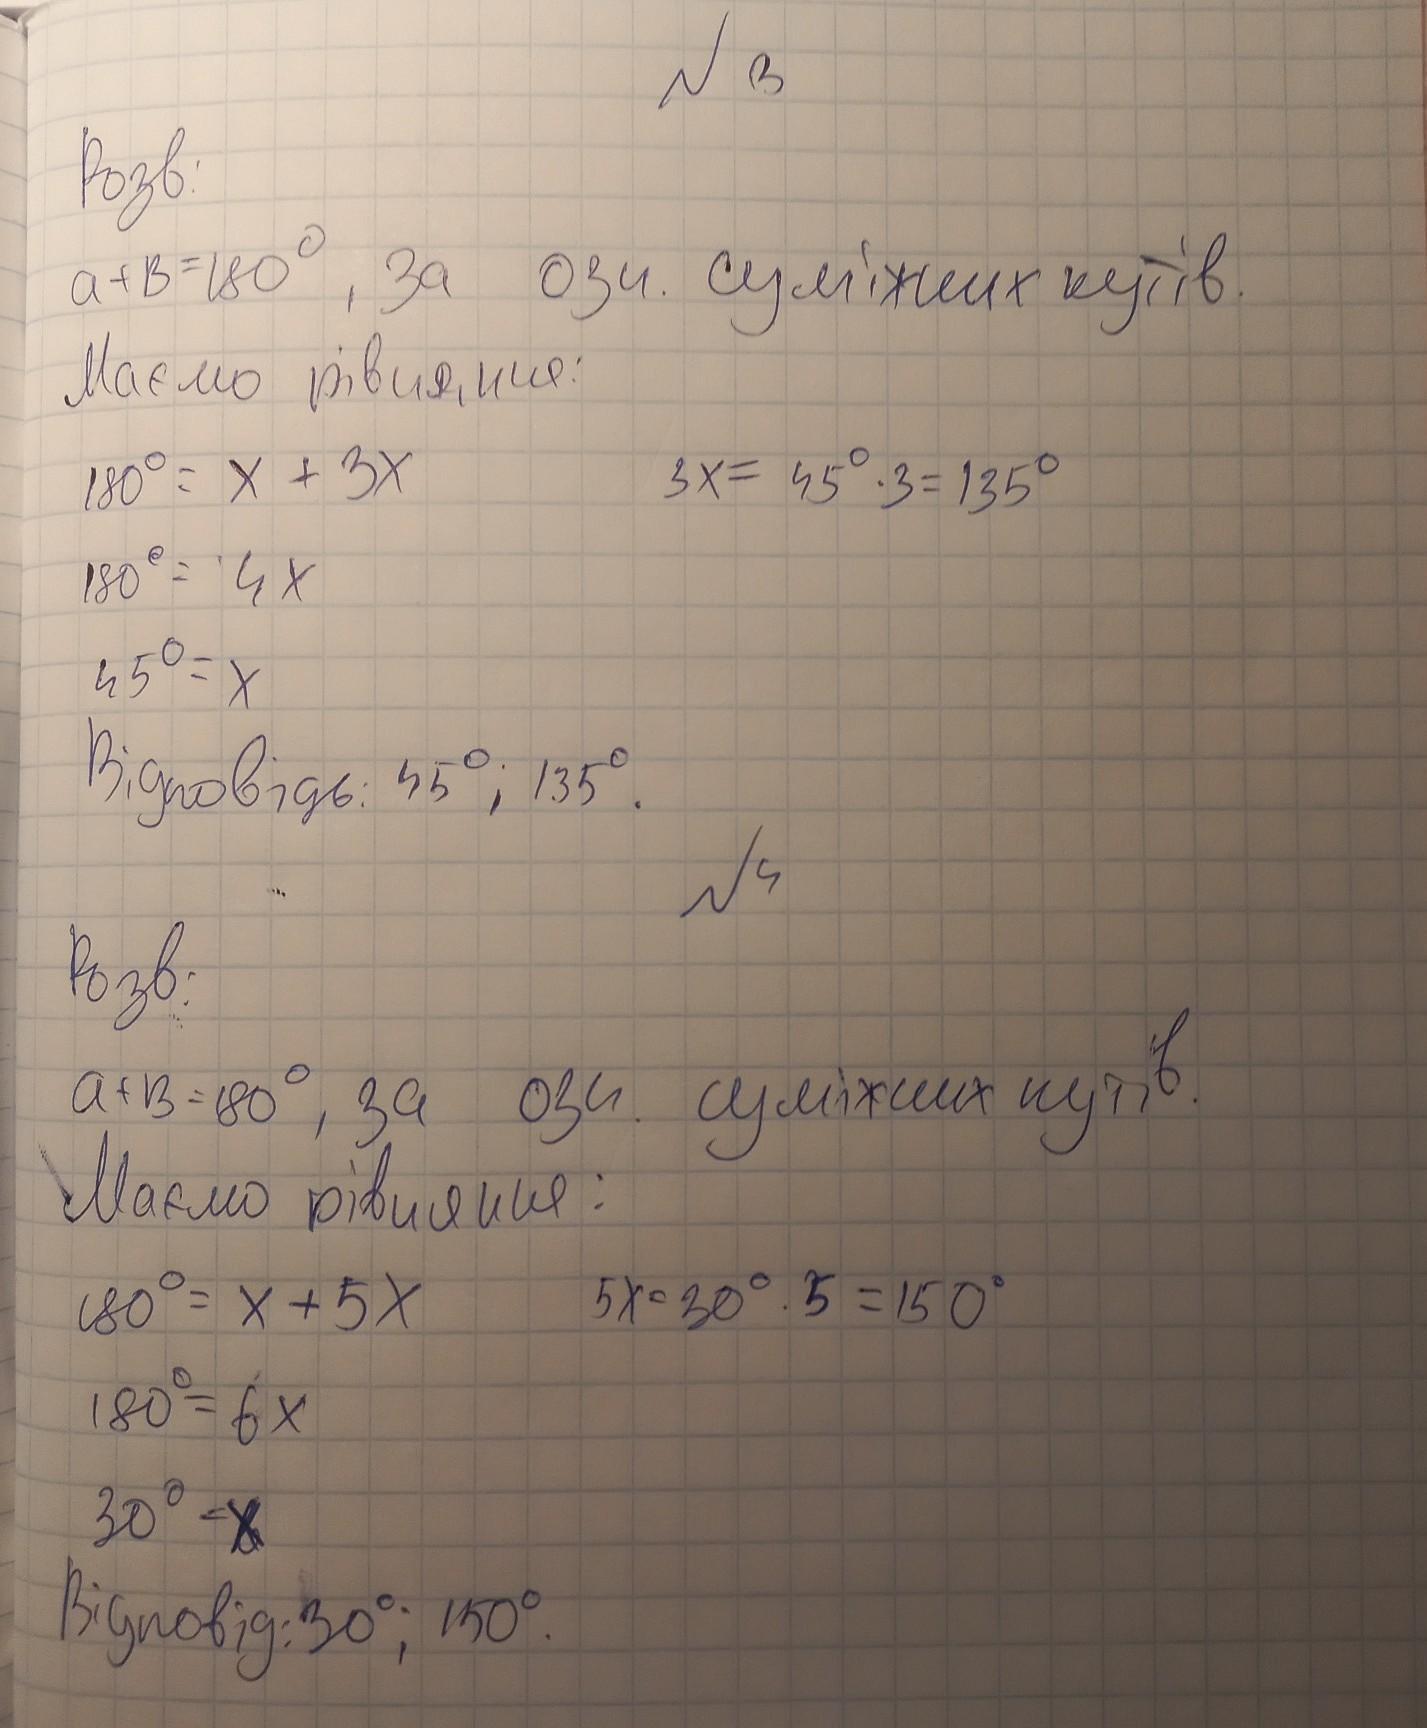 № 3
Розв:
a+B=180°, за озн. суміжних кутів.
Маємо рівняння:
180°= x + 3x 3x= 45°·3=135°
180°= 4x
45°= x
Відповідь: 45°; 135°.
№4
Розв:
a+B=180°, за озн. суміжних кутів.
Маємо рівняння:
180°= x+5x 5x=30°·5=150°
180°= 6x
30°=x
Відповід: 30°; 150°.